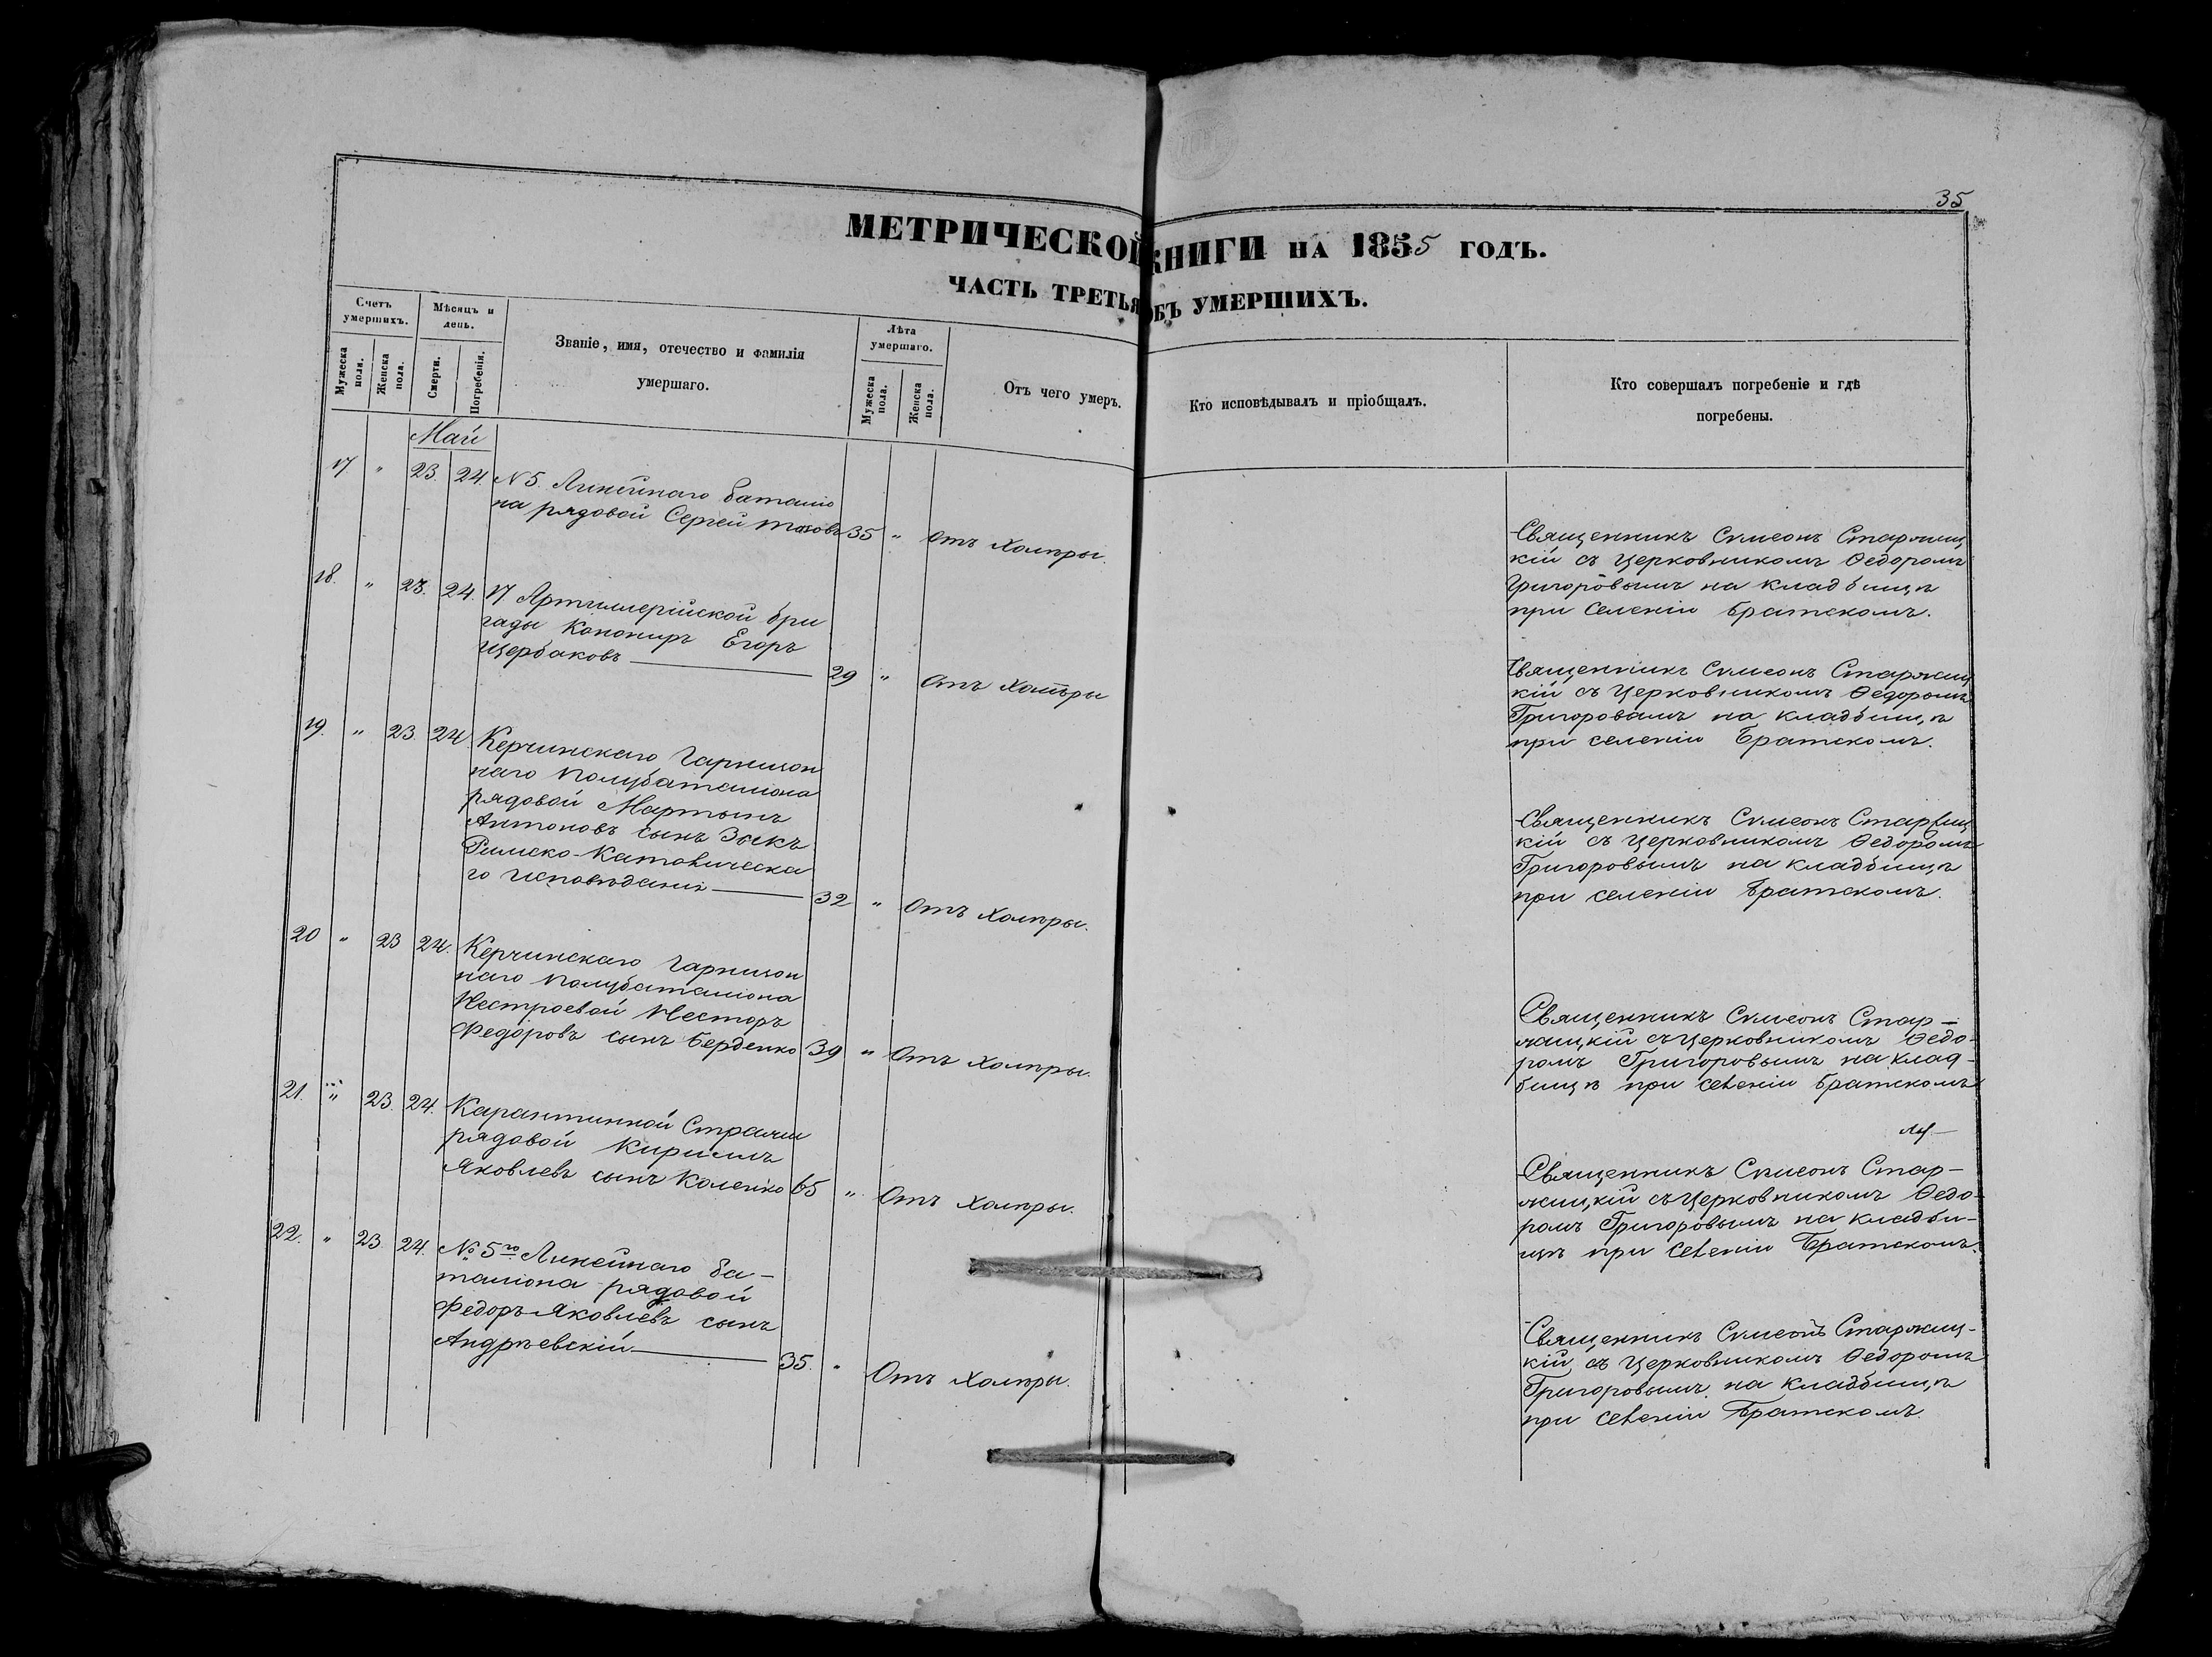 35
МЕТРИЧЕСКОЙ КНИГИ НА 1855 ГОДЪ.
ЧАСТЬ ТРЕТЬЯ ОБЪ УМЕРШИХЪ.
Счетъ умершихъ.
Мужеска пола.
Женска пола.
Мѣсяцъ и день.
Смерти.
Погребенія.
Званіе, имя, отечество и фамилія
умершаго.
Лѣта умершаго.
Мужеска пола.
Женска пола.
Отъ чего умеръ.
Кто исповѣдывалъ и пріобщалъ.
Кто совершалъ погребеніе и гдѣ
погребены.
Май
17. " 23. 24. N 5. Линейнаго баталіо
на рядовой Сергей 35 " Отъ Холеры.
Священникъ Сумеонъ Старжиц
кій съ Церковникомъ Ѳедоромъ
Григоровымъ на кладбищѣ
при Селеніи Братскомъ.
18. " 23. 24. 17 Артиллерійской бри
гады Канониръ Егоръ
Щербаковъ — 29 " Отъ Холеры
Священникъ Сумеонъ Старжиц
кій съ Церковникомъ Ѳедоромъ
Григоровымъ на кладбищѣ
при селеніи Братскомъ.
19. " 23. 24 Керчинскаго Гарнизон
наго полубаталіона
рядовой Мартынъ
Антоновъ сынъ
Римско-Католическа
го исповѣданія — 32 " Отъ Холеры.
Священникъ Сумеонъ Старжиц
кій съ Церковникомъ Ѳедоромъ
Григоровымъ на кладбищѣ
при селеніи Братскомъ.
20 " 23 24. Керчинскаго Гарнизон
наго полубаталіона
Нестроевой Несторъ
Федоровъ сынъ Берденко 39 " Отъ Холеры.
Священникъ Сумеонъ Стар-
жицкій съ Церковникомъ Ѳедо-
ромъ Григоровымъ на клад-
бищѣ при селеніи Братскомъ
21. " 23. 24. Карантинной Стражи
рядовой Кирилъ
Яковлевъ сынъ Коленко 65 " Отъ Холеры.
Священникъ Сумеонъ Стар-
жицкій съ Церковникомъ Ѳедо-
ромъ Григоровымъ на кладби-
щѣ при селеніи Братскомъ.
22. " 23. 24. № 5го Линейнаго ба-
таліона рядовой
Федоръ Яковлевъ сынъ
Андрѣевскій — 35. " Отъ Холеры.
Священникъ Сумеонъ Старжиц-
кій съ Церковникомъ Ѳедоромъ
Григоровымъ на кладбищѣ
при селеніи Братскомъ.